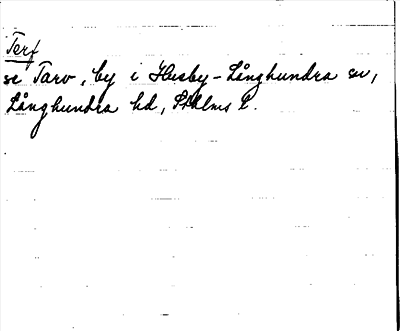 Terf
se Tarv, by i Husby-Långhundra sn,
Långhundra hd, Sthlms l.